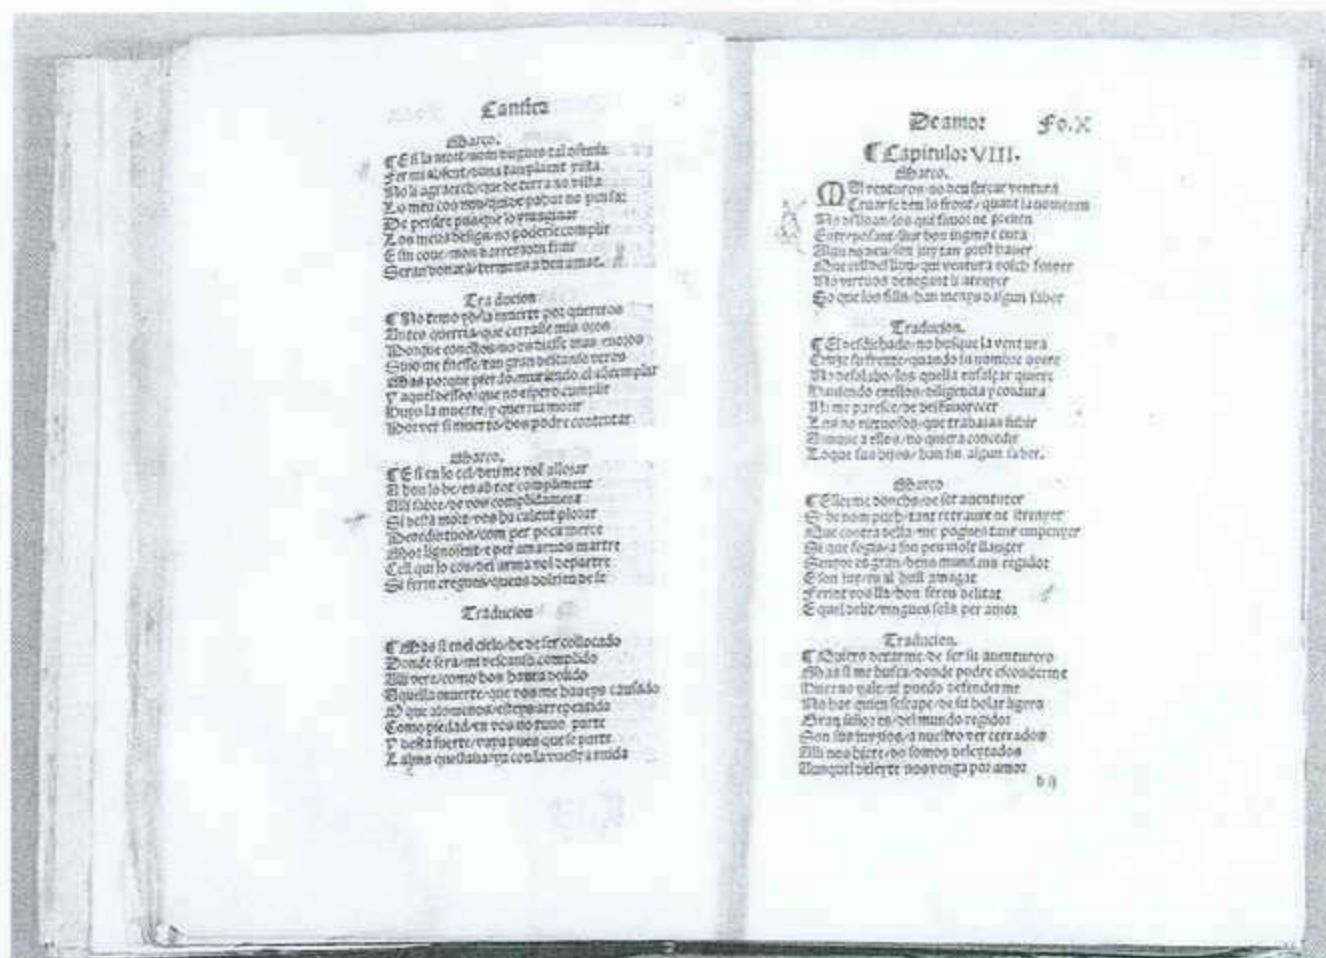 Cantica
Marco.
¶ E si la mort no'm dugues tal ofensa
Fer mi absent
No li agraesch que de terra no vista
Lo meu cos nuu qui de pahor no pensa
De perdre pus que lo ymaginar
Los meus desigs no poderse complir
E sin cove mon darrer jorn finir
Seran donats termens a ben amar.
Traducion
¶ No temo yo la muerte por quereros
Antes querria que cerrasse mis ojos
Porque conellos no os diesse mas enojos
Sino me fuesse tan gran descanso veros
Mas porque pierdo muriendo el contemplar
Y aquel desseo que no espero cumplir
Huyo la muerte y querria morir
Por ver si muerto hos podre contentar
Marco.
¶ E si en lo cel deu me vol allojar
A bon lo be en ab tot compliment
Alli sabre de vos complidament
Si desta mort vos ha calgut plorar
Penedintvos com per poca merce
Mor lignoscent e per amarvos martre
Cell qui lo cos del arma vol departre
Si ferm cregues queus dolrieu de se
Traducion
¶ Mas si enel cielo he de ser collocado
Donde sera mi descanso complido
Alli vere como hos haura dolido
Aquella muerte que vos me haueys causado
O que alomenos esteys arrepentida
Como piedad en vos no tuuo parte
Y desta suerte vaya pues que se parte
Lalma questaua ya conla vuestra vnida
De amor Fo. X
¶ Capitulo: VIII.
Marco.
MAl venturos no deu sercar ventura
Cruarse deu lo front quant la nomenen
No desloan los qui fauor ne prenen
Entreposant hiur bon ingini e cura
Algu no deu son juy tan prest hauer
Que cells deslou qui ventura volch fauer
No vertuos denegant li atenyer
Ço que los fills han menys dalgun saber
Traducion.
¶ El desdichado no busque la ventura
Cruze su frente quando su nombre oyere
No desalabo los quella ensalçar quiere
Hauiendo enellos diligencia y cordura
Ni me paresce de desfauorecer
Los no virtuosos que trabajan subir
Aunque a ellos no quiera concedir
Loque sus hijos han sin algun saber.
Marco
¶ Lexarme donchs de ser auenturer
Si de nom puch tant retraure ne strenyer
Que contra della me pogues tant empenyer
Si que fugis a son peu molt llauger
Senyor es gran dens mundans regidor
E son jus es al hull amagat
Ferint vos lla hon sereu delitat
E quel delit vingues sols per amor
Traducion.
¶ Quiero dexarme de ser su auenturero
Mas si me busca donde podre esconderme
Pues no vale ni puedo defenderme
No hay quien sescape de su bolar ligero
Gran señor es del mundo regidor
Son sus juyzios a nuestro ver cerrados
Alli nos hiere do somos deleytados
Aunquel deleyte nos venga por amor
b ij